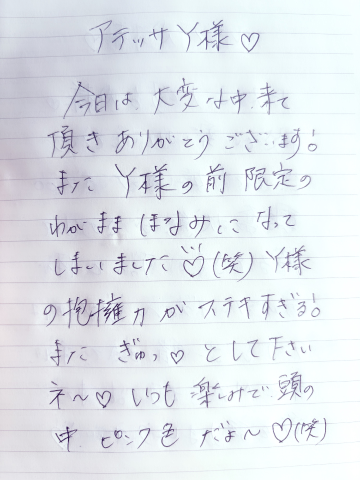 アテッサ Y様♡
今日は、大変な中、来て
頂きありがとうございます!
また Y様の前限定の
わがまま ほなみ になって
しまいました♡(笑) Y様
の抱擁力がステキすぎる!
また ぎゅっ♡ として下さい
ネ〜♡ いつも楽しみで、頭の
中 ピンク色 だよ〜♡(笑)